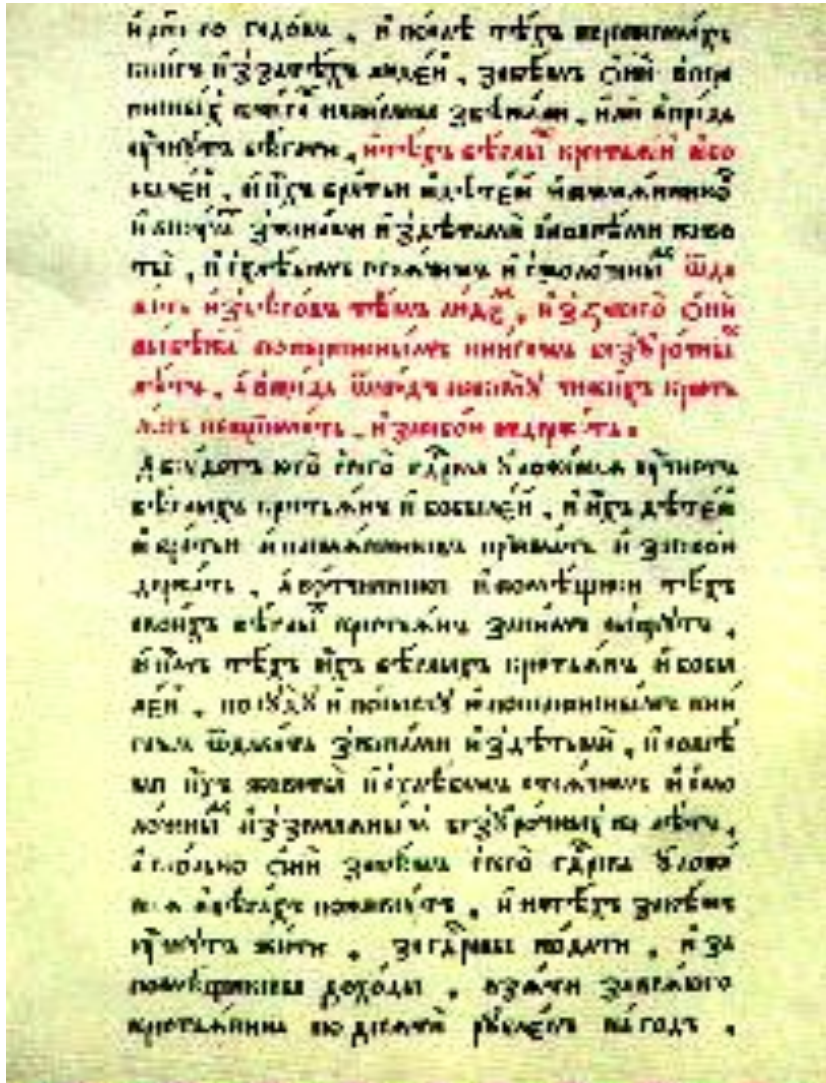 го годовъ . и послѣ тѣхъ переписныхъ
книгъ и ззатѣхъ людей , закѣмъ они впере
писныхъ книгахъ написаны збѣжали , или впредь
учнутъ бѣгати , и тѣхъ бѣглыхъ крестьянъ и бо
былей , и ихъ братью и дѣтей и племянников
и внучатъ зженами и здѣтьми и совсѣми живо
ты , и схлѣбомъ стоячимъ и смолочены ѿда
вать изъбѣговъ тѣмъ людем , и ззакого они
выбѣжатъ попереписнымъ книгамъ безурочных
лѣтъ , а впредь ѿнюдь никому чюжихъ кресть
янъ неприимать , и засобою недержать .
А будетъ кто сего гдрева уложенія учнетъ
бѣглыхъ крестьянъ и бобылей , и ихъ дѣтей
и братью и племянниковъ приимать и засобою
держать , а вотчинники и помѣщики тѣхъ
своихъ бѣглых крестьянъ занимъ сыщутъ ,
и имъ тѣхъ ихъ бѣглыхъ крестьянъ и бобы
лей , посуду и посыску и попереписнымъ кни
гамъ ѿдавать зженами и здѣтьми , и совсѣ
ми ихъ животы и схлѣбомъ стоячимъ и смо
лочены и ззем­лянымъ безурочныхъ лѣтъ ,
а сколько они закѣмъ сего гдрева уложе
вбѣгахъ поживутъ , и натѣхъ закѣмъ
учнутъ жити . загдревы подати , и за
помѣщиковы доходы . взяти завсякого
крестьянина подесяти рублевъ нагодъ .